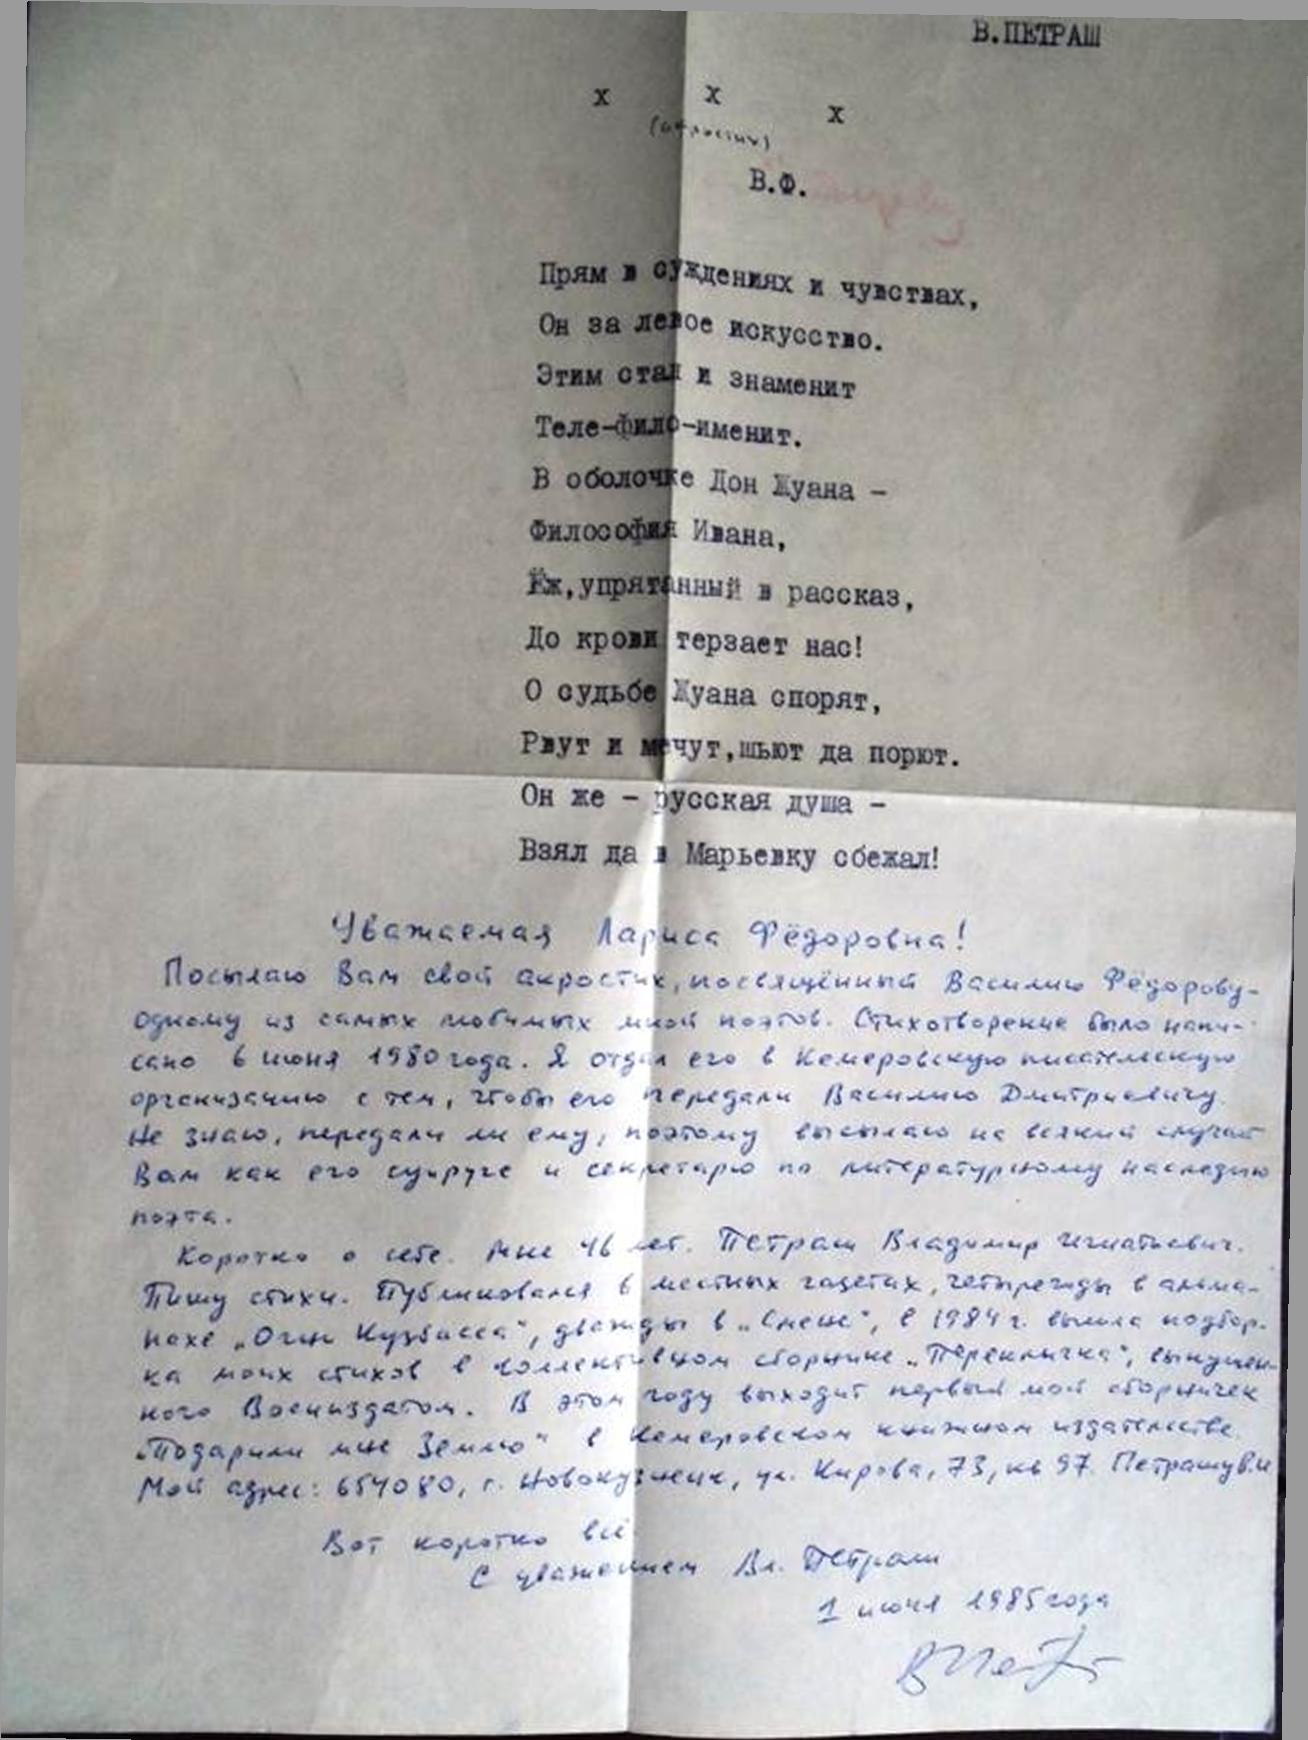 В.ПЕТРАШ
х х х
(акростих)
В.Ф.
Прям в суждениях и чувствах,
Он за левое искусство.
Этим стал и знаменит
Теле-фило-именит.
В оболочке Дон Жуана –
Философия Ивана,
Ёж,упрятанный в рассказ,
До крови терзает нас!
О судьбе Жуана спорят,
Рвут и мечут,шьют да порют.
Он же – русская душа –
Взял да в Марьевку сбежал!
Уважаемая Лариса Фёдоровна!
Посылаю Вам свой акростих, посвящённый Василию Фёдорову-
одному из самых любимых мной поэтов. Стихотворение было напи-
сано 6 июня 1980 года. Я отдал его в Кемеровскую писательскую
организацию с тем, чтобы его передали Василию Дмитриевичу.
Не знаю, передали ли ему, поэтому высылаю на всякий случай
Вам как его супруге и секретарю по литературному наследию
поэта.
Коротко о себе. Мне 46 лет. Петраш Владимир Игнатьевич.
Пишу стихи. Публиковался в местных газетах, четырежды в альма-
нахе „Огни Кузбасса", дважды в „Смене", в 1984 г. вышла подбор-
ка моих стихов в коллективном сборнике „Перекличка", выпущен-
ного Воениздатом. В этом году выходит первый мой сборничек
„Подарили мне Землю" в Кемеровском книжном издательстве.
Мой адрес: 654080, г. Новокузнецк, ул. Кирова, 73, кв 97. Петрашу В.И
Вот коротко всё.
С уважением Вл. Петраш
1 июня 1985 года